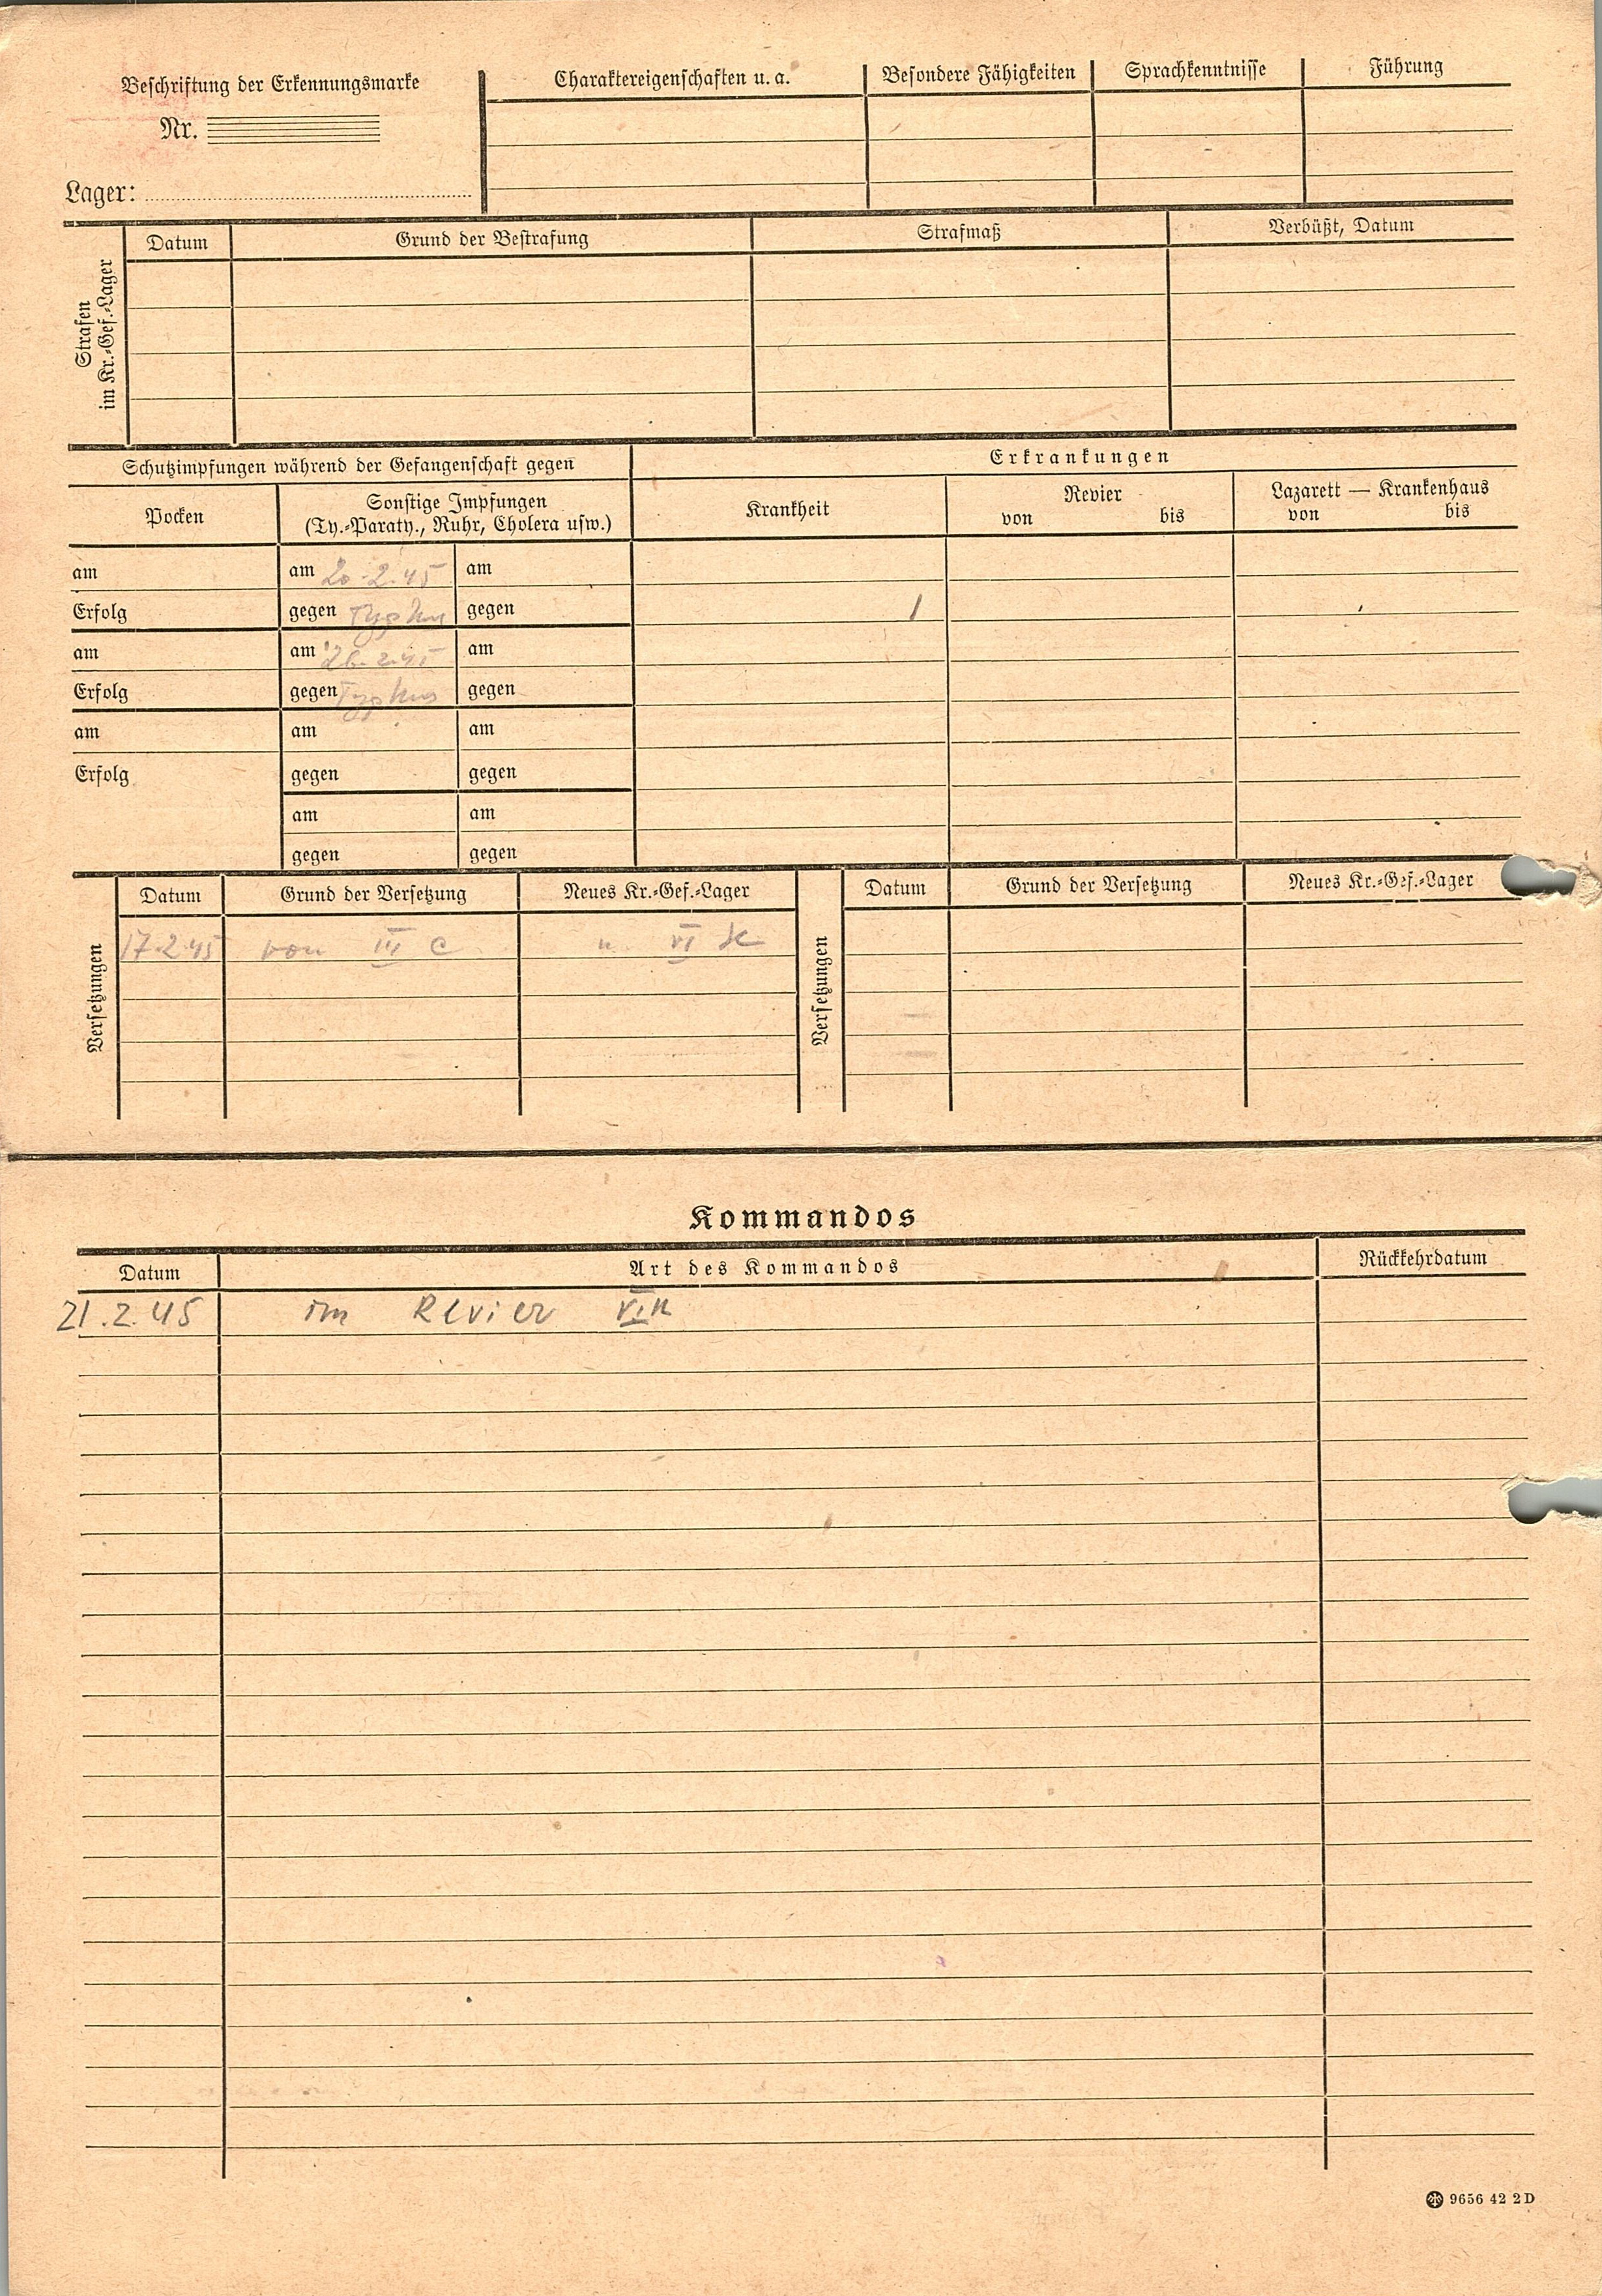 Beschriftung der Erkennungsmarke
Nr.
Lager:
Charaktereigenschaften u. a.
Besondere Fähigkeiten
Sprachkenntnisse
Führung
Strafen
im Kr.-Gef.-Lager
Datum
Grund der Bestrafung
Strafmaß
Verbüßt, Datum
Schutzimpfungen während der Gefangenschaft gegen
Erkrankungen
Pocken
Sonstige Impfungen
(Ty.-Paraty., Ruhr, Cholera usw.)
Krankheit
Revier
von bis
Lazarett — Krankenhaus
von bis
am
am 20.2.45
am
Erfolg
gegen Typhus
gegen
am
am 26.2.45
am
Erfolg
gegen Typhus
gegen
am
am
am
Erfolg
gegen
gegen
am
am
gegen
gegen
Versetzungen
Datum
Grund der Versetzung
Neues Kr.-Gef.-Lager
17.2.45
von III C
n. VI K
Versetzungen
Datum
Grund der Versetzung
Neues Kr.-Gef.-Lager
Kommandos
Datum
Art des Kommandos
Rückkehrdatum
21.2.45
im Revier VIK
9656 42 2D